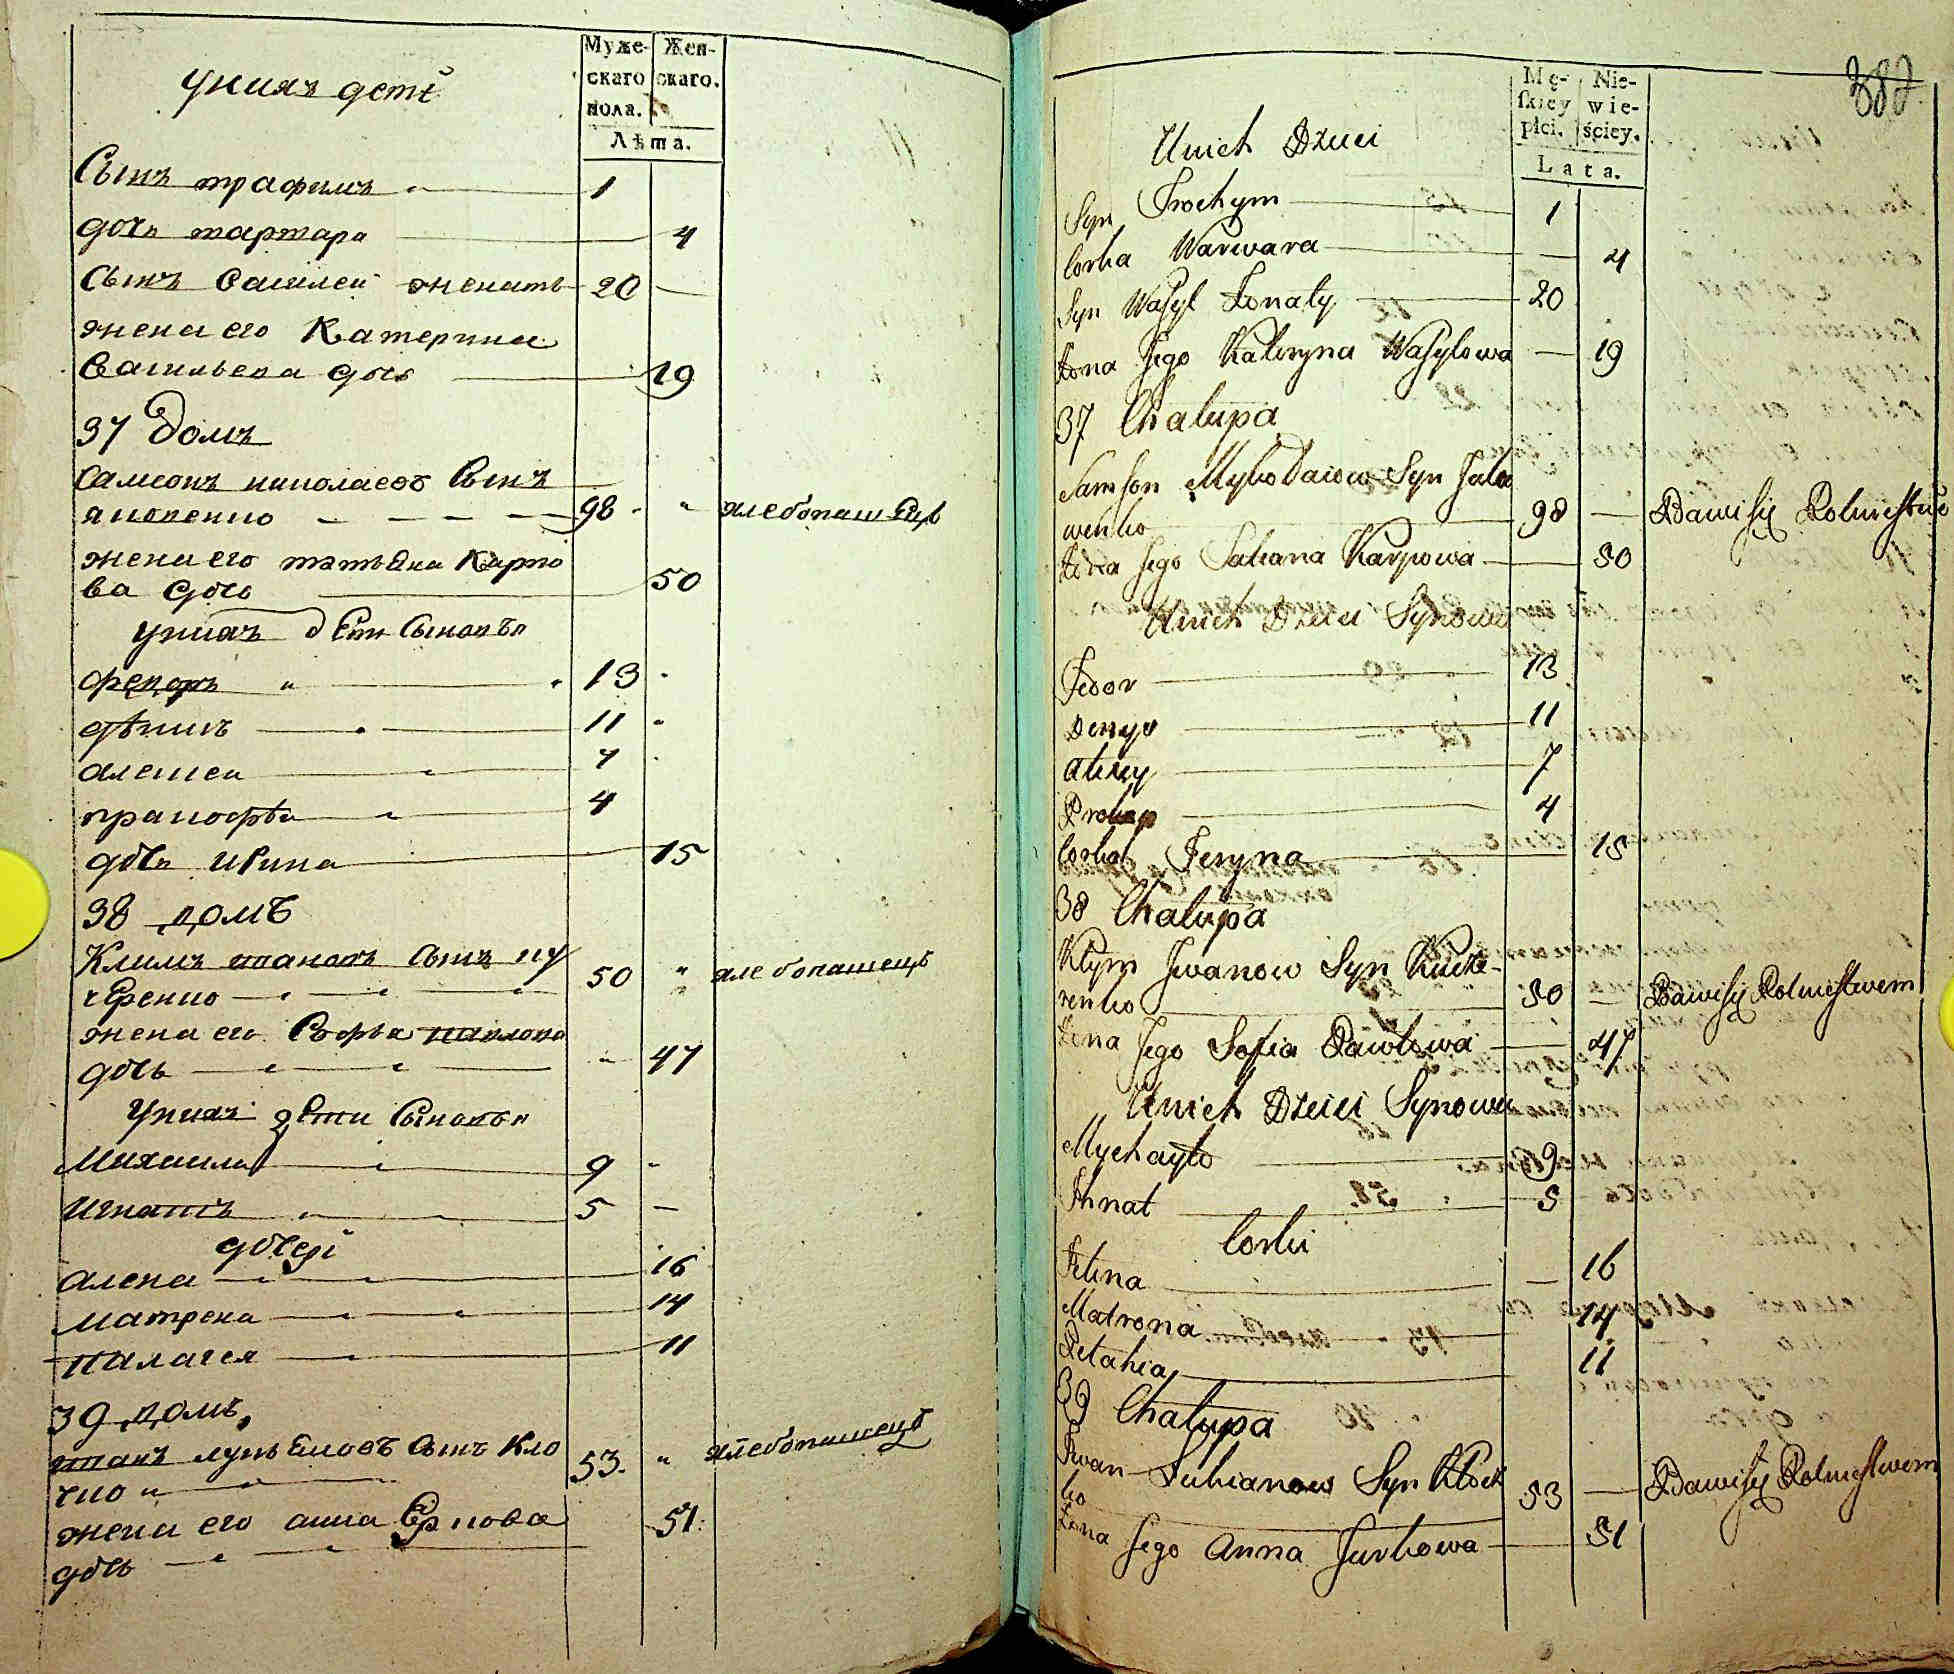 Муже-
скаго
пола.
Жен-
скаго.
Лѣта.
униⷯ дети
Сынъ трафимъ 1
дочь 4
Сынъ Василеи женатъ 20 —
жена его Катерина
Васильева дочь 19
37 Домъ
Самсонъ николаевъ Сынъ
яковенко 98 хлебопашецъ
жена его татьяна Карпо
ва дочь 50
униⷯ дети Сыновьи
федоръ 13
дѣнисъ 11
алексеи 7
пракофеи 4
дочь ирина 15
38 домъ
Климъ ивановъ Сынъ ку
черенко 50 хлебопашецъ
жена его Софья павлова
дочь 47
униⷯ дети Сыновьи
Михаила 9
игнатъ 5 —
дочери
алена 16
матрена 14
палагея 11
39 домъ
иванъ лукьяновъ Сынъ Кло
чко 53 хлебопашецъ
жена его анна
дочь 51
382
Mę-
skiey
płci.
Nie-
wie-
ściey.
Lata.
Unich Dzieci
Syn Trochym 1
Corka Warwara — 4
Syn Wasyl Żonaty 20
Żona Jego Kateryna Wasylowa — 19
37 Chałupa
Samson Mykołaiow Syn Jako
wenko 98 — Bawi się Rolnictwe
Żona Jego Tatiana Karpowa 50
Unich Dzieci Synowie
Fedor 13
Denys 11
Alexey 7
Prokop 4
Corka Jeryna 15
38 Chałupa
Kłym Jwanow Syn Kucze-
renko 50 — Bawi się Rolnictwem
Żona Jego Sofia Pawłowa 47
Unich Dzieci Synowie
Mychayło 9
Ihnat 5
Corki
16
Matrona 14
Pełahia 11
39 Chałupa
Iwan Łukianow Syn Kłocz
ko 53 — Bawi się Rolnictwem
Żona Jego Anna Jurkowa 51